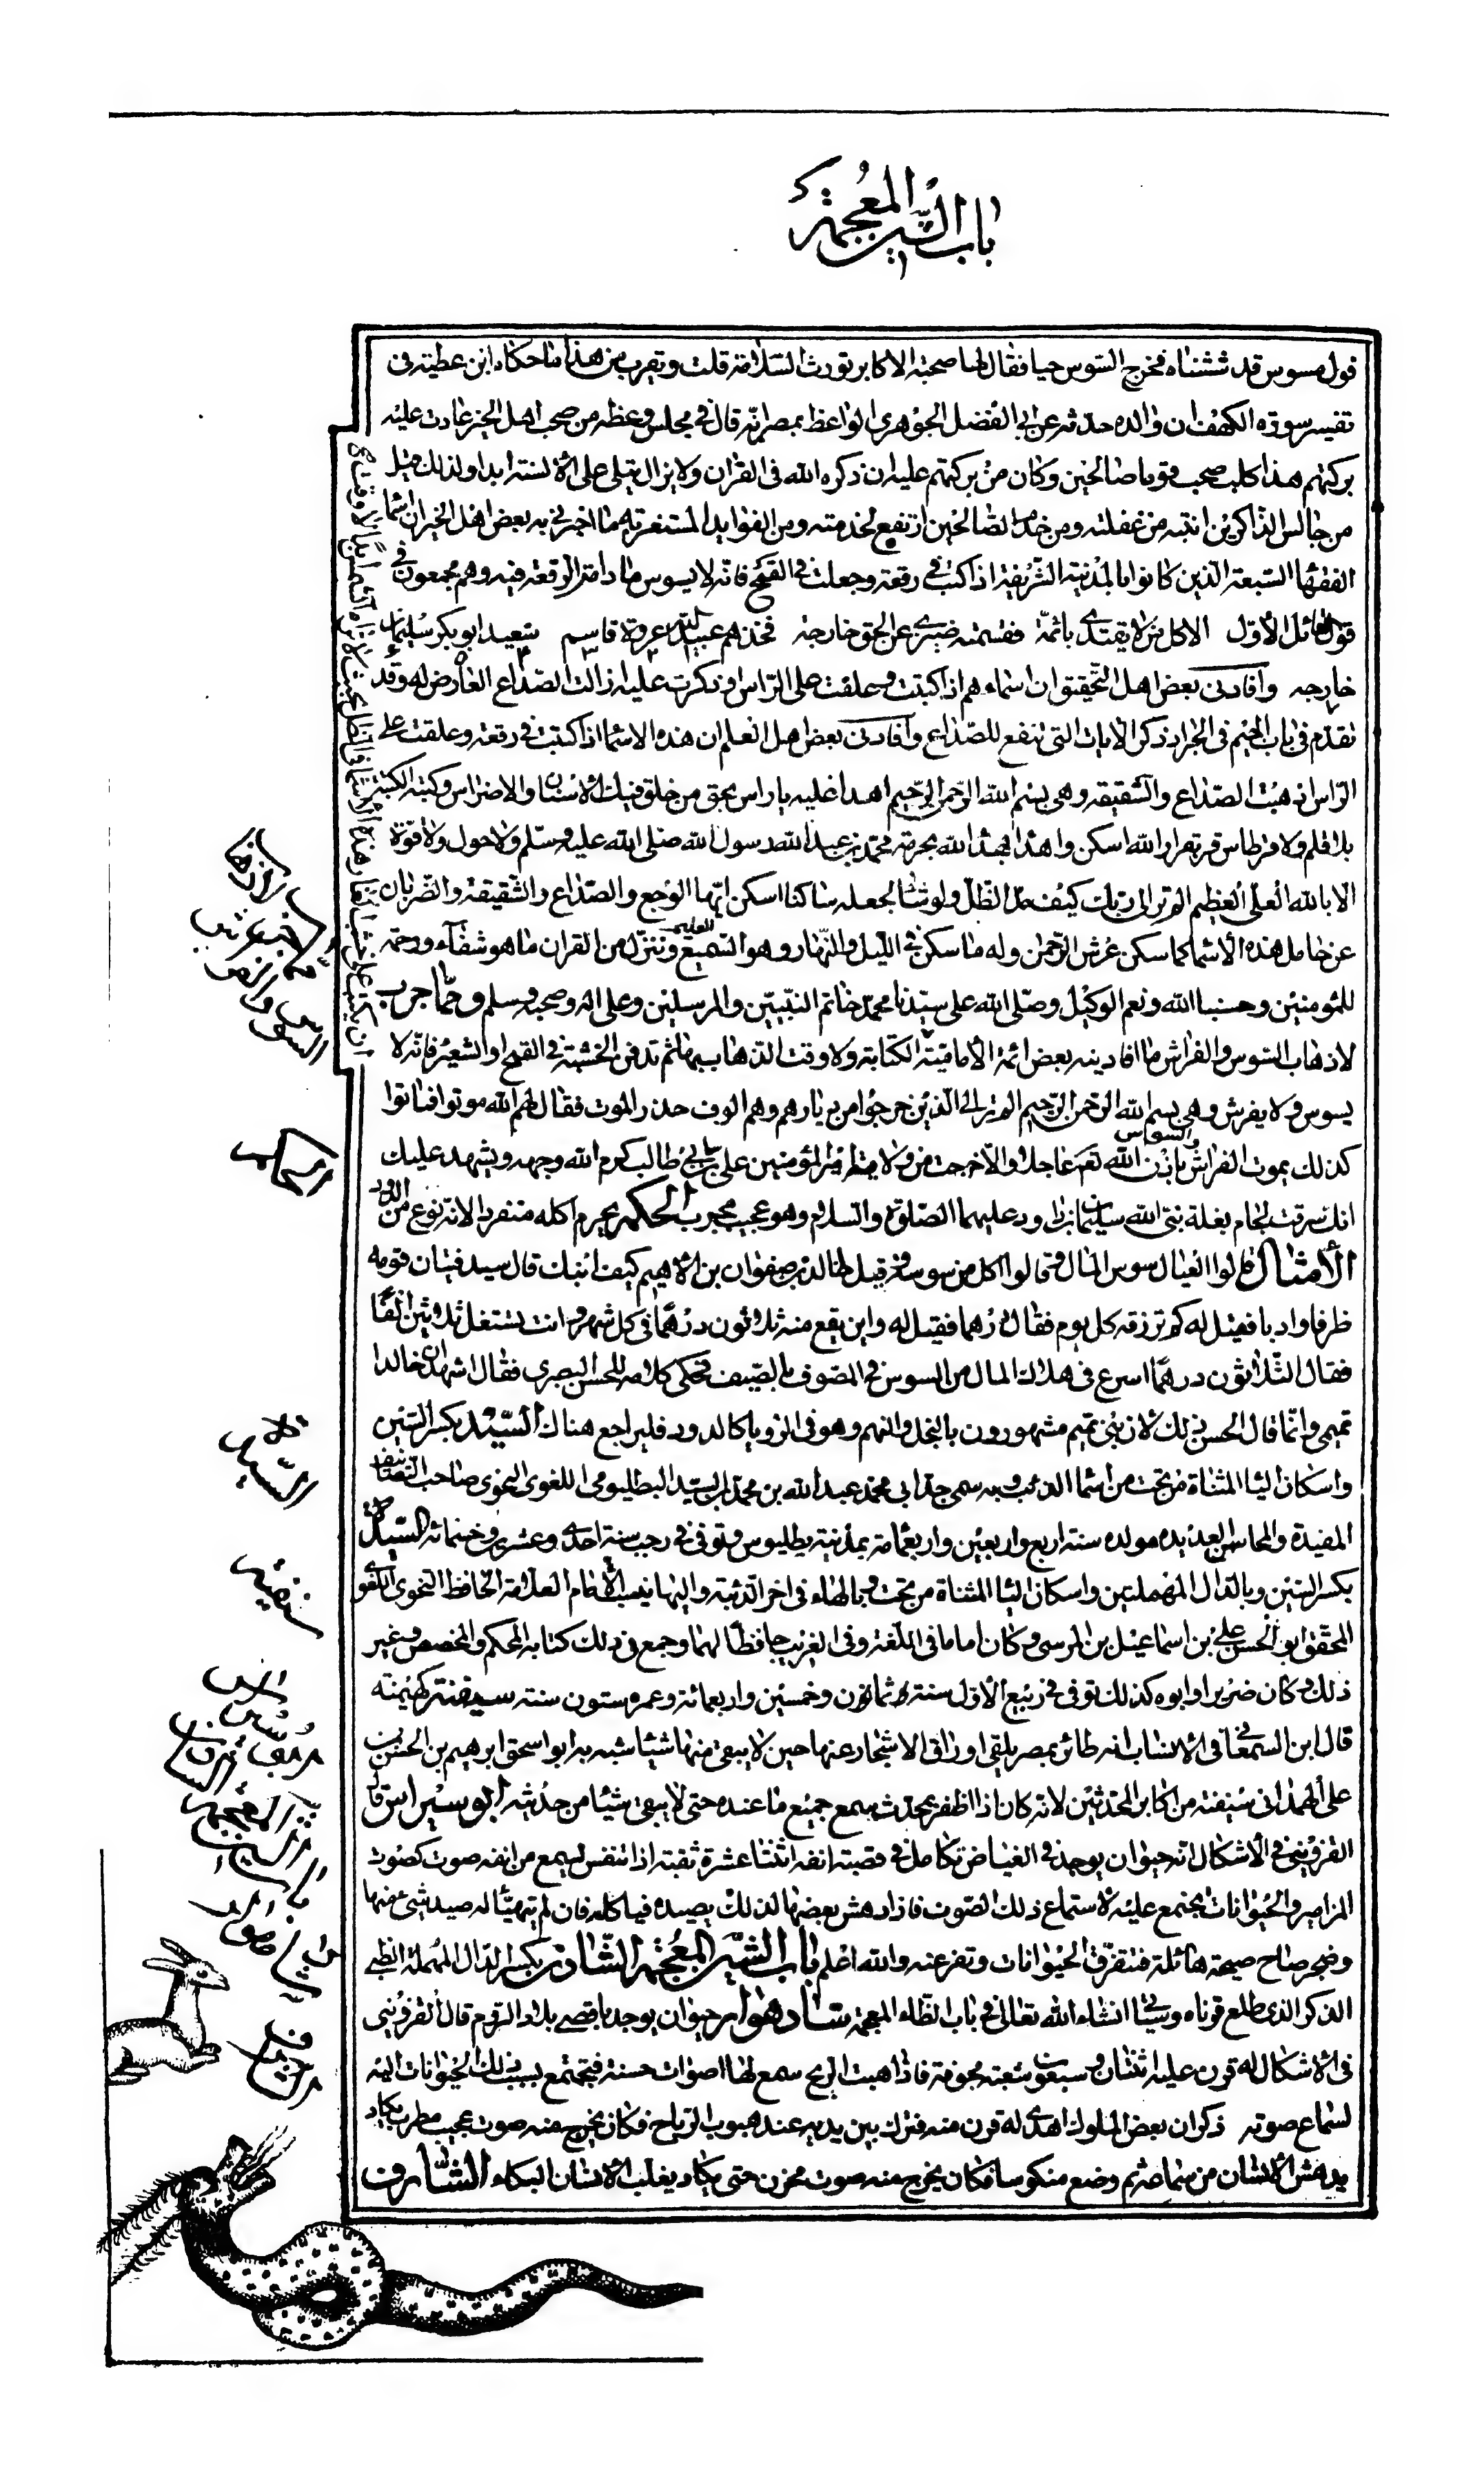 باب الشين المعجمة
فول مسوس قد شششناه فخرج السوس حيا فقال لها صحبة الاكابر تورث السلامة قلت ويقرب من هذا ما حكاه ابن عطية في
تفسير سورة الكهف ان والده حدثه عن ابي الفضل الجوهري الواعظ بمصر انه قال في مجلس وعظه من صحب اهل الخير عادت عليه
بركتهم هذا كلب صحب قوما صالحين وكان من بركتهم عليه ان ذكره الله في القران ولا يزال يتلى على الالسنة ابدا ولذلك قيل
من جالس الذاكرين انتبه من غفلته ومن خدم الصالحين ارتفع لخدمته ومن الفوايد المستغربة مما اخبرني به بعض اهل الخير ان اسما
الفقها السبعة الذين كانوا بالمدينة الشريفة اذا كتبت في رقعة وجعلت في القمح فانه لا يسوس ما دامت الرقعة فيه وهم مجمعون في
قول القائل الاول الا كل من لا يقتدي بائمة فقسمته ضيزى عن الحق خارجة فخذهم عبيد الله عروة قاسم سعيد ابو بكر سليمان
خارجة وافادني بعض اهل التحقيق ان اسماءهم اذا كتبت وعلقت على الراس او ذكرت عليه ازالت الصداع العارض له وقد
تقدم في باب الجيم في الجراد ذكر الايات التي تنفع للصداع وافادني بعض اهل العلم ان هذه الاسما اذا كتبت في رقعة وعلقت على
الراس اذهبت الصداع والشقيقة وهي بسم الله الرحمن الرحيم اهدا عليه يا راس بحق من خلق فيك الاسنان والاضراس وكتبه الكتبة
بلا قلم ولا قرطاس قر بقرار الله اسكن واهدا بهدا الله بحرمة محمد بن عبد الله رسول الله صلى الله عليه وسلم ولا حول ولا قوة
الا بالله العلي العظيم الم تر الى ربك كيف مد الظل ولو شا لجعله ساكنا اسكن ايها الوجع والصداع والشقيقة والضربان
عن حامل هذه الاسما كما سكن عرش الرحمن وله ما سكن في الليل والنهار وهو السميع العليم وننزل من القران ما هو شفاء ورحمة
للمومنين وحسبنا الله ونعم الوكيل وصلى الله على سيدنا محمد خاتم النبيين والمرسلين وعلى اله وصحبه وسلم ومما جرب
لاذهاب السوس والفراش ما افادنيه بعض ائمة الكتابة ولا وقت الذهاب بها ثم تدفن الخشبة في القمح او الشعير فانه لا
يسوس ولا يفرش وهي بسم الله الرحمن الرحيم الم تر الى الذين خرجوا من ديارهم وهم الوف حذر الموت فقال لهم الله موتوا فماتوا
كذلك يموت الفراش والسوس باذن الله تعالى عاجلا والا خرجت من ولاية امير المؤمنين علي بن ابي طالب كرم الله وجهه ويشهد عليك
انك سرقت لجام بغلة نبي الله سليمان بن داود عليهما الصلوة والسلام وهو عجيب مجرب الحكم يحرم اكله منفردا لانه نوع من الدود
الامثال قالوا العيال سوس المال وقالوا اكل من سوسة قيل لخالد بن صفوان بن الاهيم كيف ابنك قال سيد فتيان قومه
ظرفا وادبا فقيل له كم ترزقه كل يوم فقال درهما فقيل له واين يقع منه ثلاثون درهما في كل شهر وانت تستغل ثلاثين الفا
فقال الثلاثون درهما اسرع في هلاك المال من السوس في الصوف بالصيف فحكى كلامه للحسن البصري فقال اشهد ان خالدا
تميمي وانما قال الحسن ذلك لان بني تميم مشهورون بالبخل والنهم وهو في الرويا كالدود فليراجع هناك السيد بكسر السين
واسكان اليا المثناة من تحت من اسما الذئب وبه سمي جد ابي محمد عبد الله بن محمد بن السيد البطليوسي اللغوي النحوي صاحب التصانيف
المفيدة والمحاسن العديده مولده سنة اربع واربعين واربعمائة بمدينة بطليوس وتوفي في رجب سنة احدى وعشرين وخمسمائة السيدة
بكسر السين وبالدال المهملتين واسكان اليا المثناة من تحت وبالهاء في اخره الذئبة واليها ينسب الامام العلامة الحافظ النحوي اللغوي
المحقق ابو الحسن علي بن اسماعيل بن المرسي وكان اماما في اللغة وفي الغريب حافظا لهما وجمع في ذلك كتابه المحكم والمخصص وغير
ذلك وكان ضريرا وابوه كذلك توفي في ربيع الاول سنة ثمان وخمسين واربعمائة وعمره ستون سنة سيفنة كهيمنة
قال ابن السمعاني في الانساب انه طائر بمصر يلقي اوراق الاشجار عنها حين لا يبقي منها شيئا شبه به ابو اسحق ابرهيم بن الحسن بن
علي الهمداني سيفنة من اكابر المحدثين لانه كان اذا ظفر بمحدث سمع جميع ما عنده حتى لا يبقي شيئا من حديثه ابو سيراس قال
القزويني في الاشكال انه حيوان يوجد في الغياض تكامل في قصبة انفه اثنتا عشرة ثقبة اذا تنفس يسمع من انفه صوت كصوت
المزامير والحيوانات يجتمع عليه لاستماع ذلك الصوت فاذا دهش بعضها لذلك يصيده فياكله فان لم يتهيأ له صيد شيء منها
وضجر صاح صيحة هائلة فتتفرق الحيوانات وتفر عنه والله اعلم باب الشين المعجمة الشادن بكسر الدال المهملة الظبي
الذكر الذي طلع قرناه وسياتي انشاء الله تعالى في باب الظاء المعجمة شادهوار حيوان يوجد باقصى بلاد الروم قال القزويني
في الاشكال له قرن عليه اثنتان وسبعون شعبة مجوفة فاذا هبت الريح سمع لها اصوات حسنة فيجتمع بسبب ذلك الحيوانات اليه
لسماع صوته ذكر ان بعض الملوك اهدي له قرن منه فترك بين يديه عند هبوب الرياح فكان يخرج منه صوت عجيب مطرب يكاد
يدهش الانسان من سماعه ثم وضع منكوسا فكان يخرج منه صوت محزن حتى يكاد يغلب الانسان البكاء الشارف
السيد
سيفنة